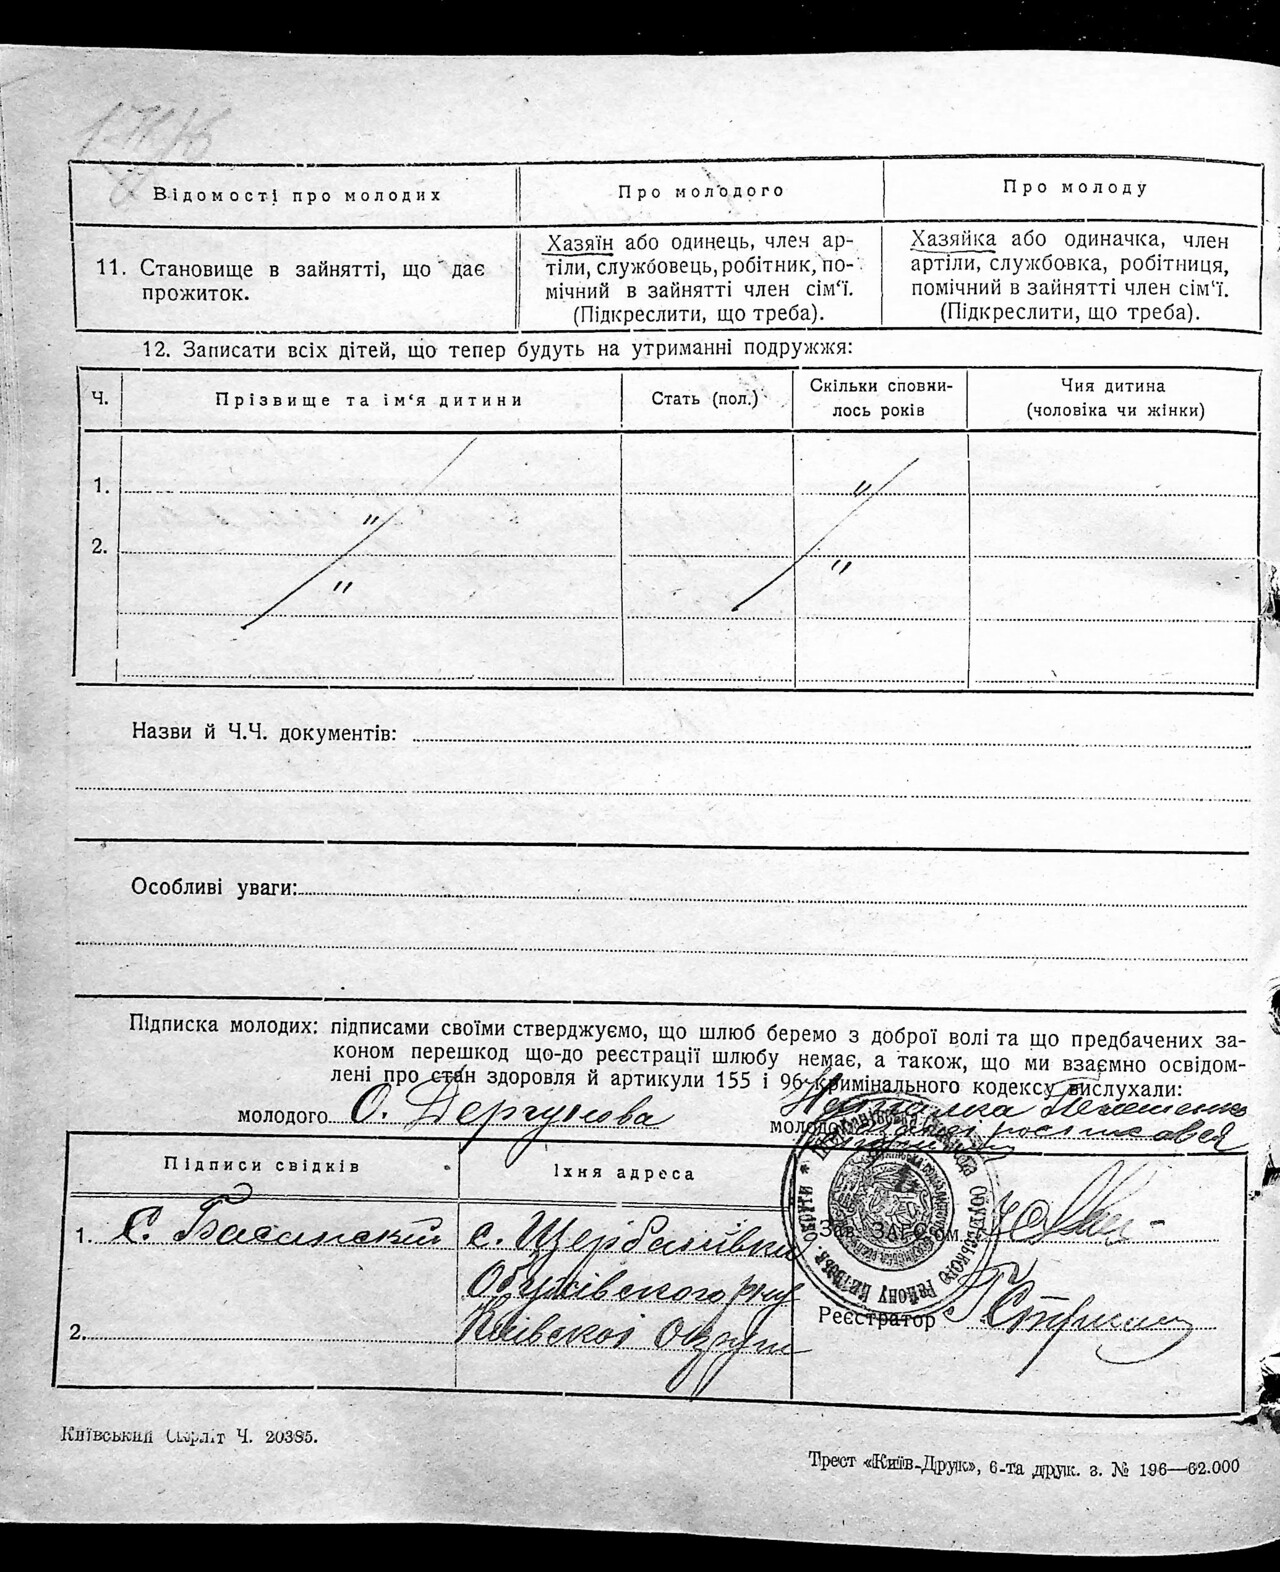 Відомості про молодих
Про молодого
Про молоду
11. Становище в зайнятті, що дає
прожиток.
Хазяїн або одинець, член ар-
тіли, службовець, робітник, по-
мічний в зайнятті член сім'ї.
(Підкреслити, що треба).
Хазяйка або одиначка, член
артіли, службовка, робітниця,
помічний в зайнятті член сім'ї.
(Підкреслити, що треба).
12. Записати всіх дітей, що тепер будуть на утриманні подружжя:
Ч.
Прізвище та ім'я дитини
Стать (пол.)
Скільки сповни-
лось років
Чия дитина
(чоловіка чи жінки)
1.
"
"
2.
"
"
Назви й Ч.Ч. документів:
Особливі уваги:
Підписка молодих: підписами своїми стверджуємо, що шлюб беремо з доброї волі та що предбачених за-
коном перешкод що-до реєстрації шлюбу немає, а також, що ми взаємно освідом-
лені про стан здоровля й артикули 155 і 96 кримінального кодексу вислухали:
молодого О. Дергунова
Підписи свідків
Їхня адреса
1. С. Басанский
с. Щербанівки
Обухівського рну
Київскої Округи
2.
Зав. ЗАГС'ом
Реєстратор
Київський Окрліт Ч. 20385.
Трест «Київ-Друк», 6-та друк. з. № 196—62.000